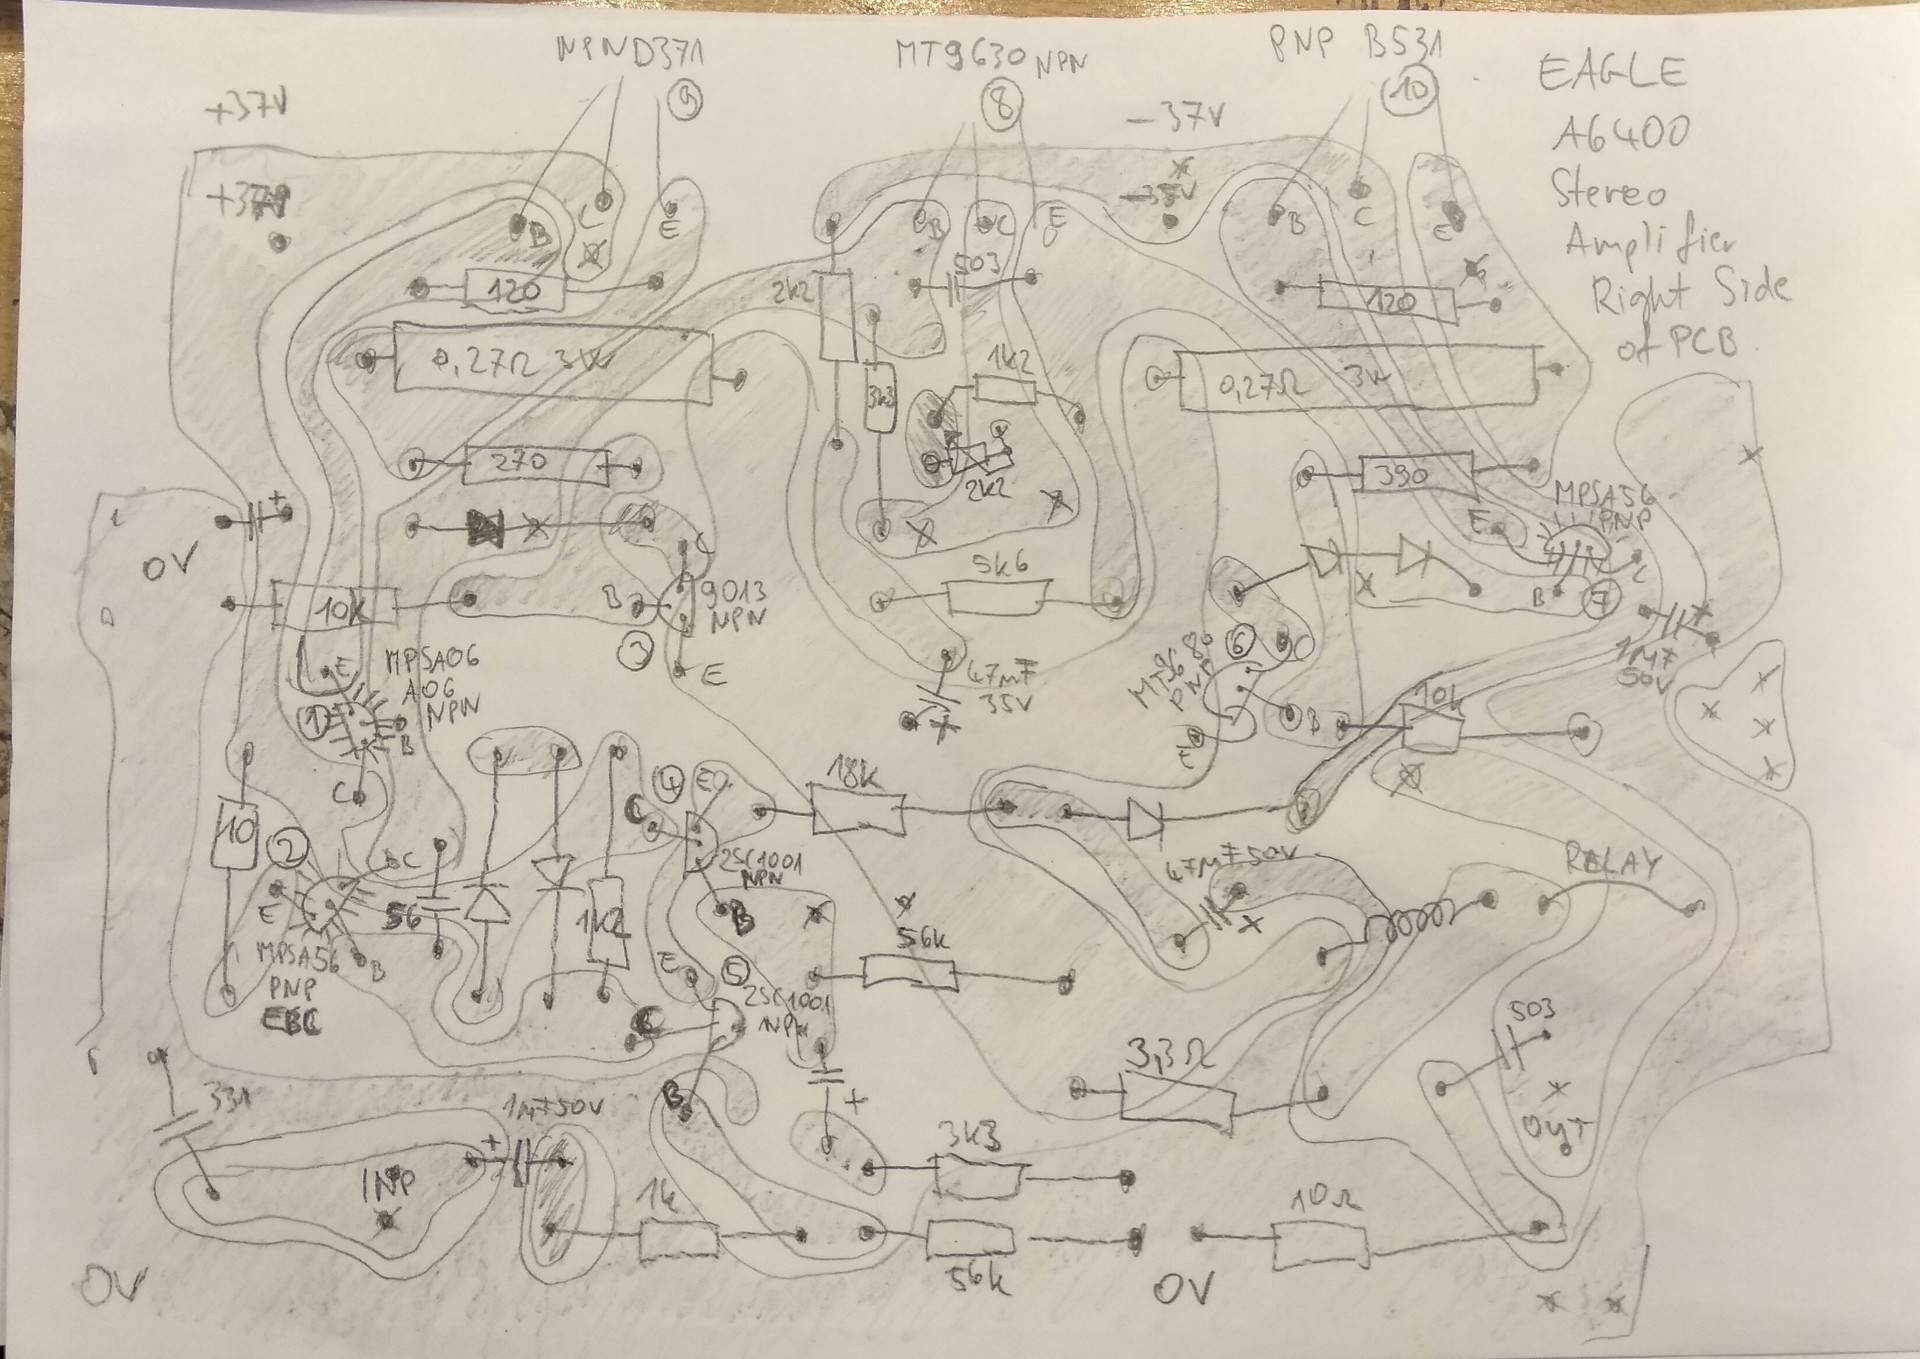 NPN D371
9
MT9630 NPN
8
PNP B531
10
EAGLE
A6400
Stereo
Amplifier
Right Side
of PCB
+37V
-37V
+37V
-35V
B
C
E
B
C
E
B
C
E
120
503
2k2
120
0,27Ω 3W
3k3
1k2
0,27Ω 3W
270
2k2
390
MPSA56
PNP
E
+
0V
C
5k6
C
10k
B
9013
NPN
3
B
7
E
MPSA06
A06
NPN
1
B
C
E
47μF
35V
+
6
C
PNP
E
B
10k
+
1μF
50V
10
2
C
E
MPSA56
PNP
EBC
B
56
1k2
4
E
C
2SC1001
NPN
B
18k
47μF 50V
RELAY
E
5
2SC1001
NPN
C
B
56k
+
3,3Ω
503
OUT
331
1μF 50V
+
INP
1k
3k3
56k
10Ω
0V
0V